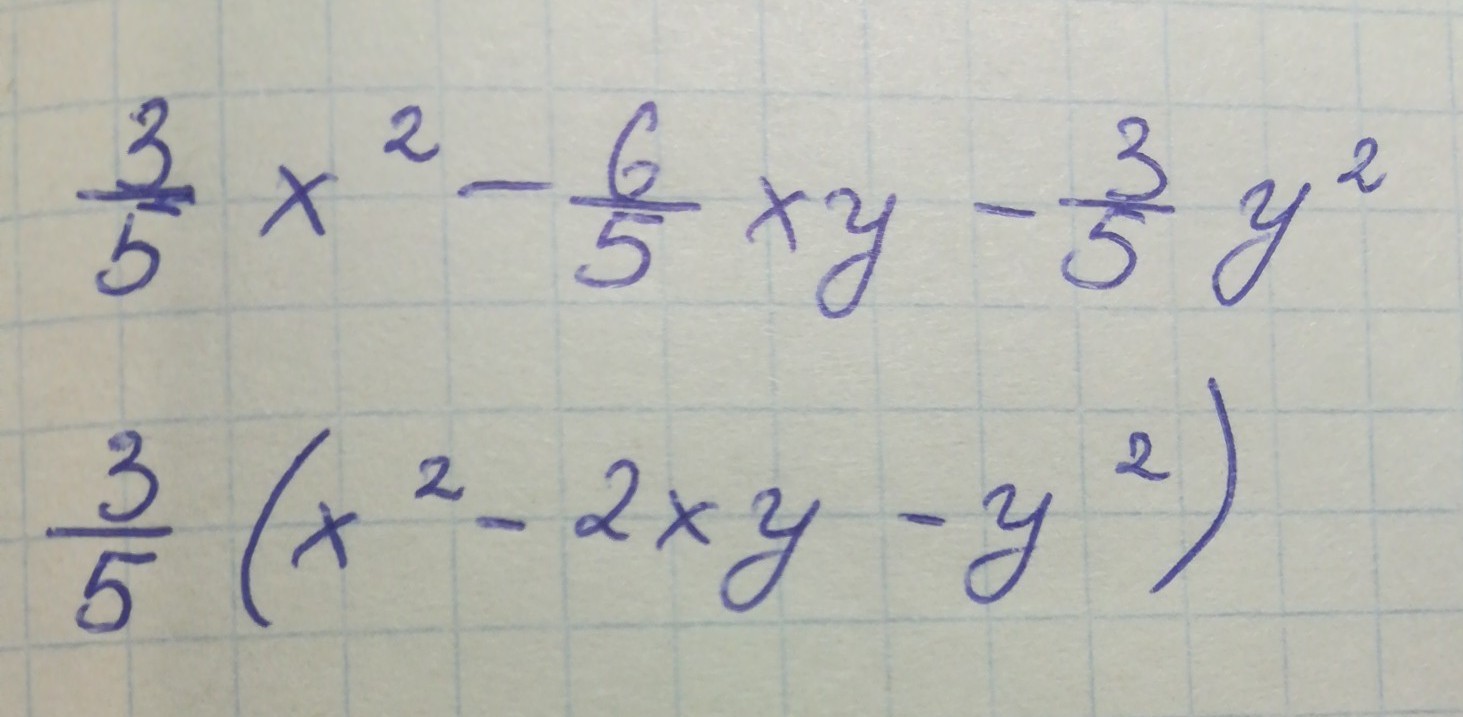 3/5 x² - 6/5 xy - 3/5 y²
3/5 (x² - 2xy - y²)